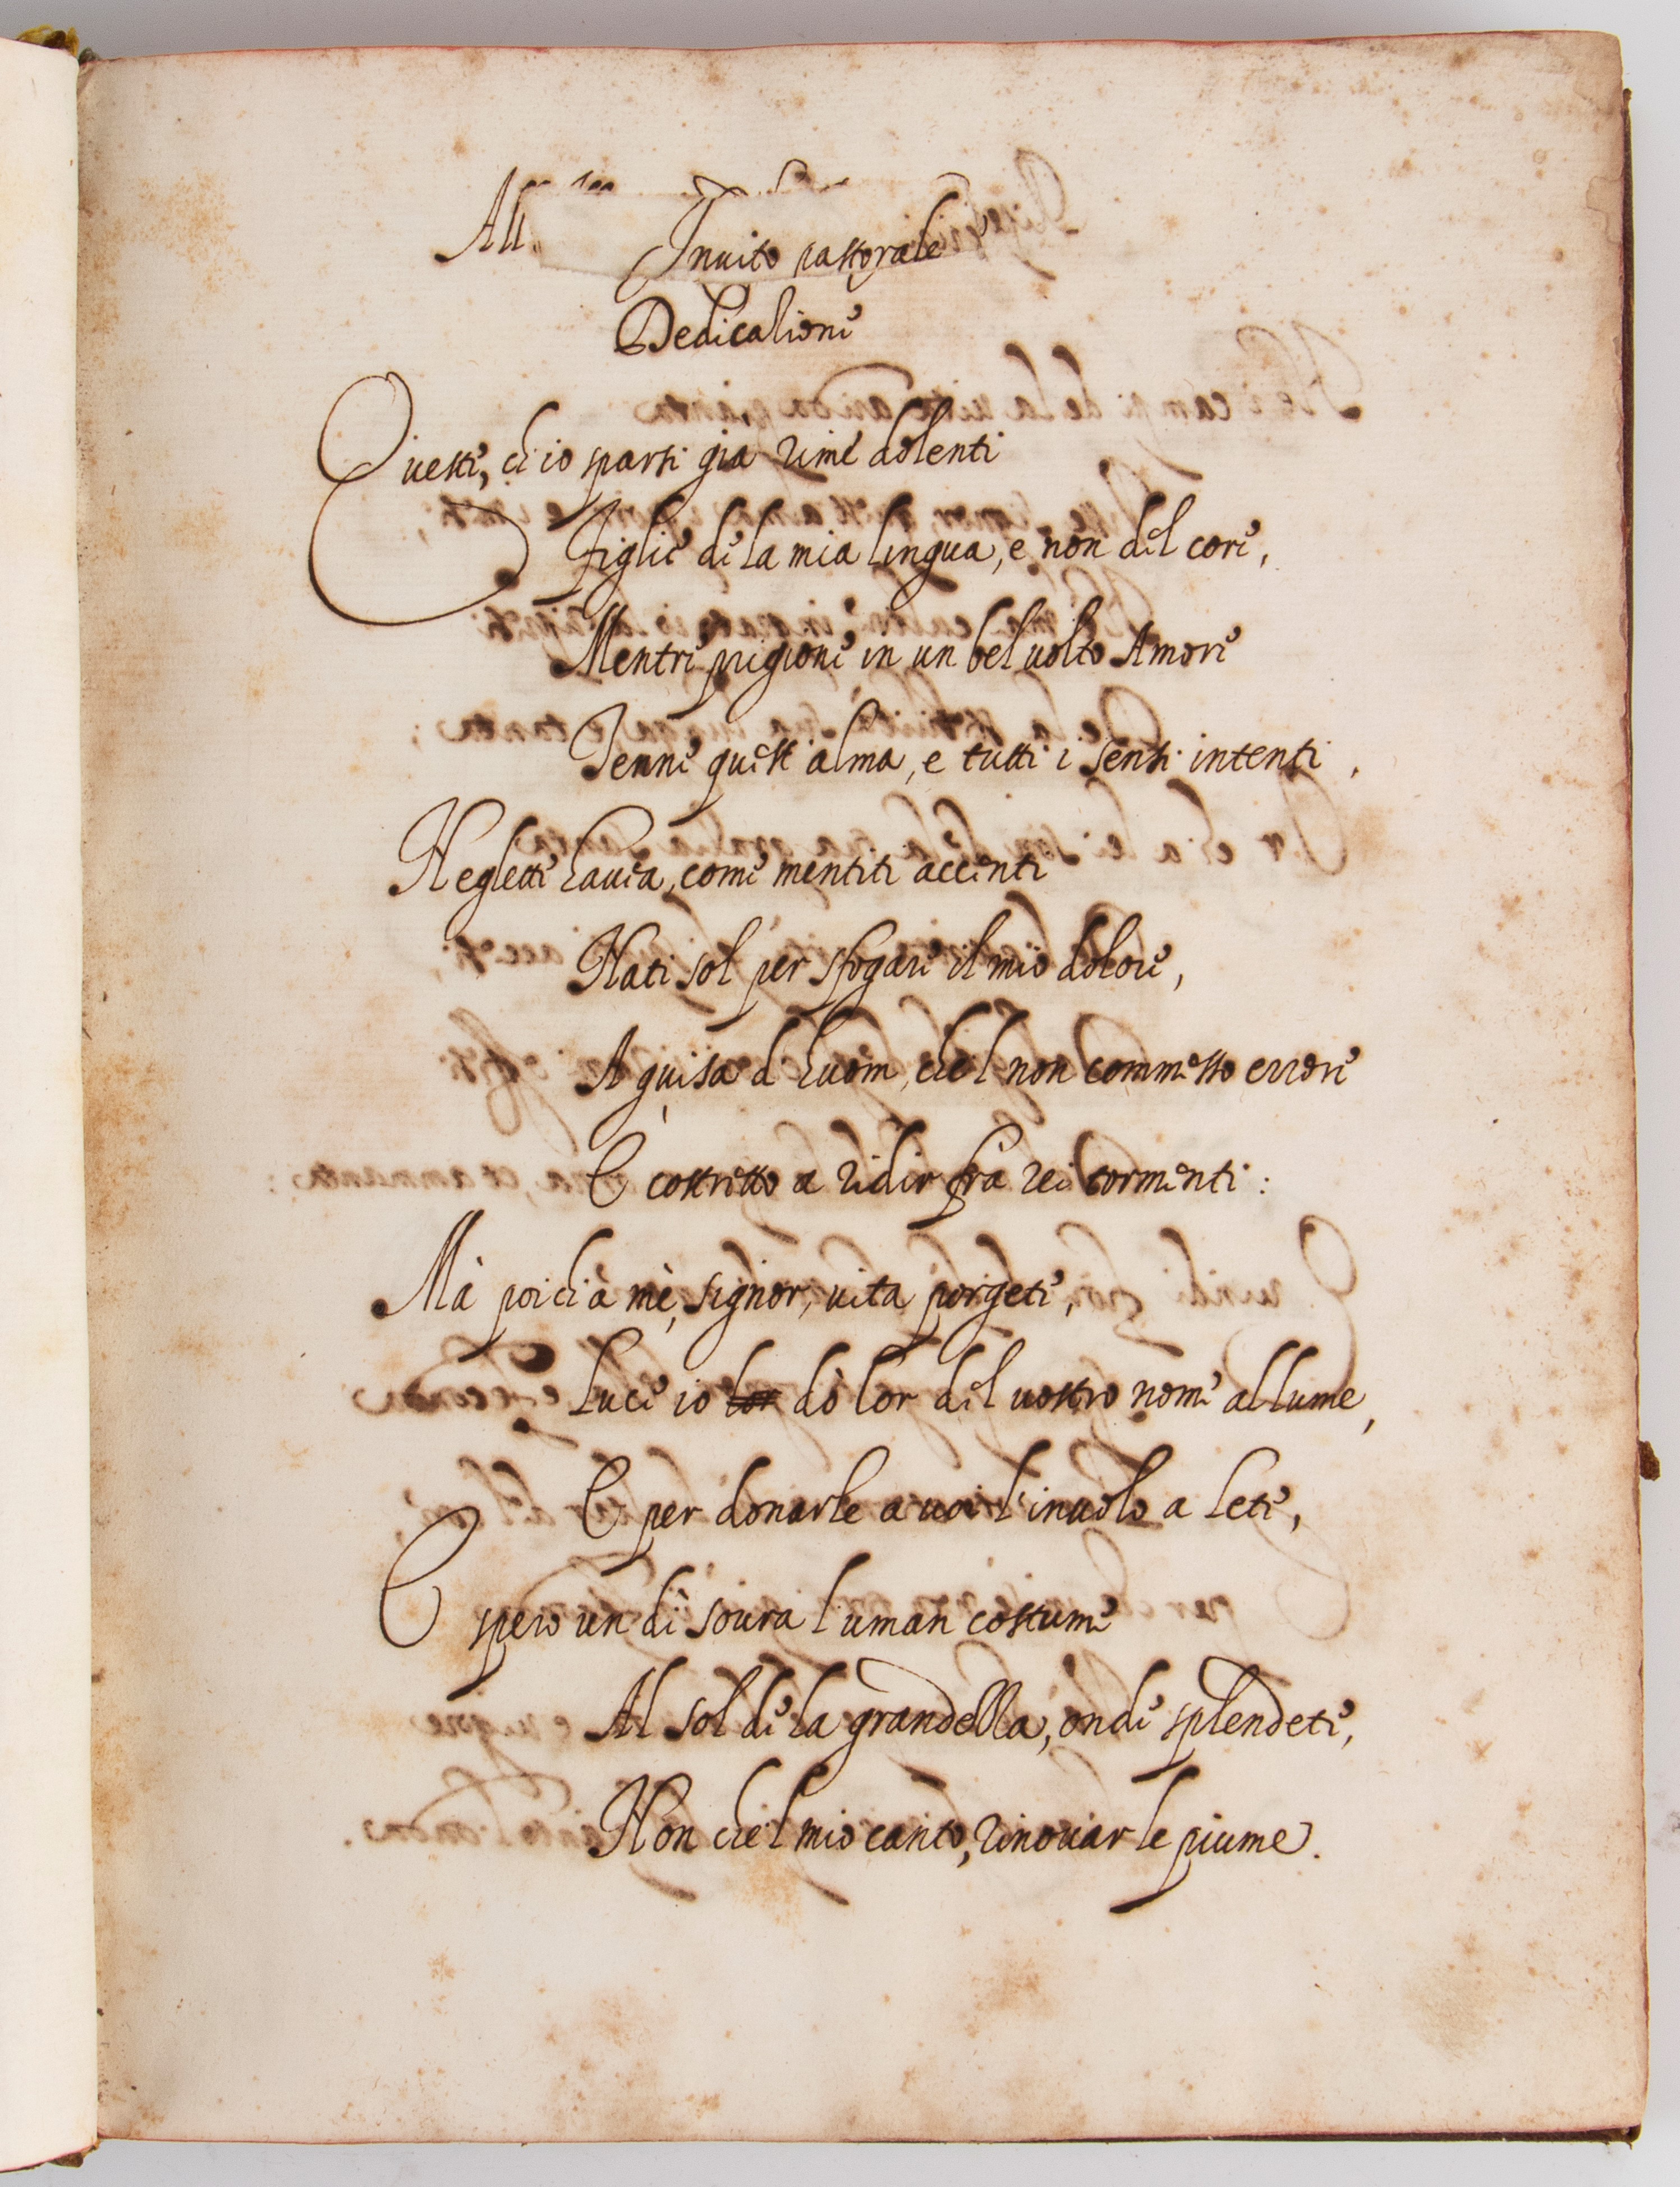 All.
Inuito pastorale
Dedicatione
Queste, ch'io sparsi gia rime dolenti
Figlie de la mia lingua, e non del core,
Mentre prigione in un bel uolto Amore
Tenne quest'alma, e tutti i sensi intenti,
Neglette hauea, come mentiti accenti
Nati sol per sfogare il mio dolore,
A guisa d'huom, che'l non commesso errore
E costretto a ridir fra rei tormenti:
Mà poich'à mè, Signor, uita porgete,
Luce io lor dò lor del uostro nome al lume,
E per donarle a uoi l'inuolo a Lete,
E spero un dì soura l'uman costume
Al sol de la grandezza, onde splendete,
Non che'l mio canto, rinouar le piume.